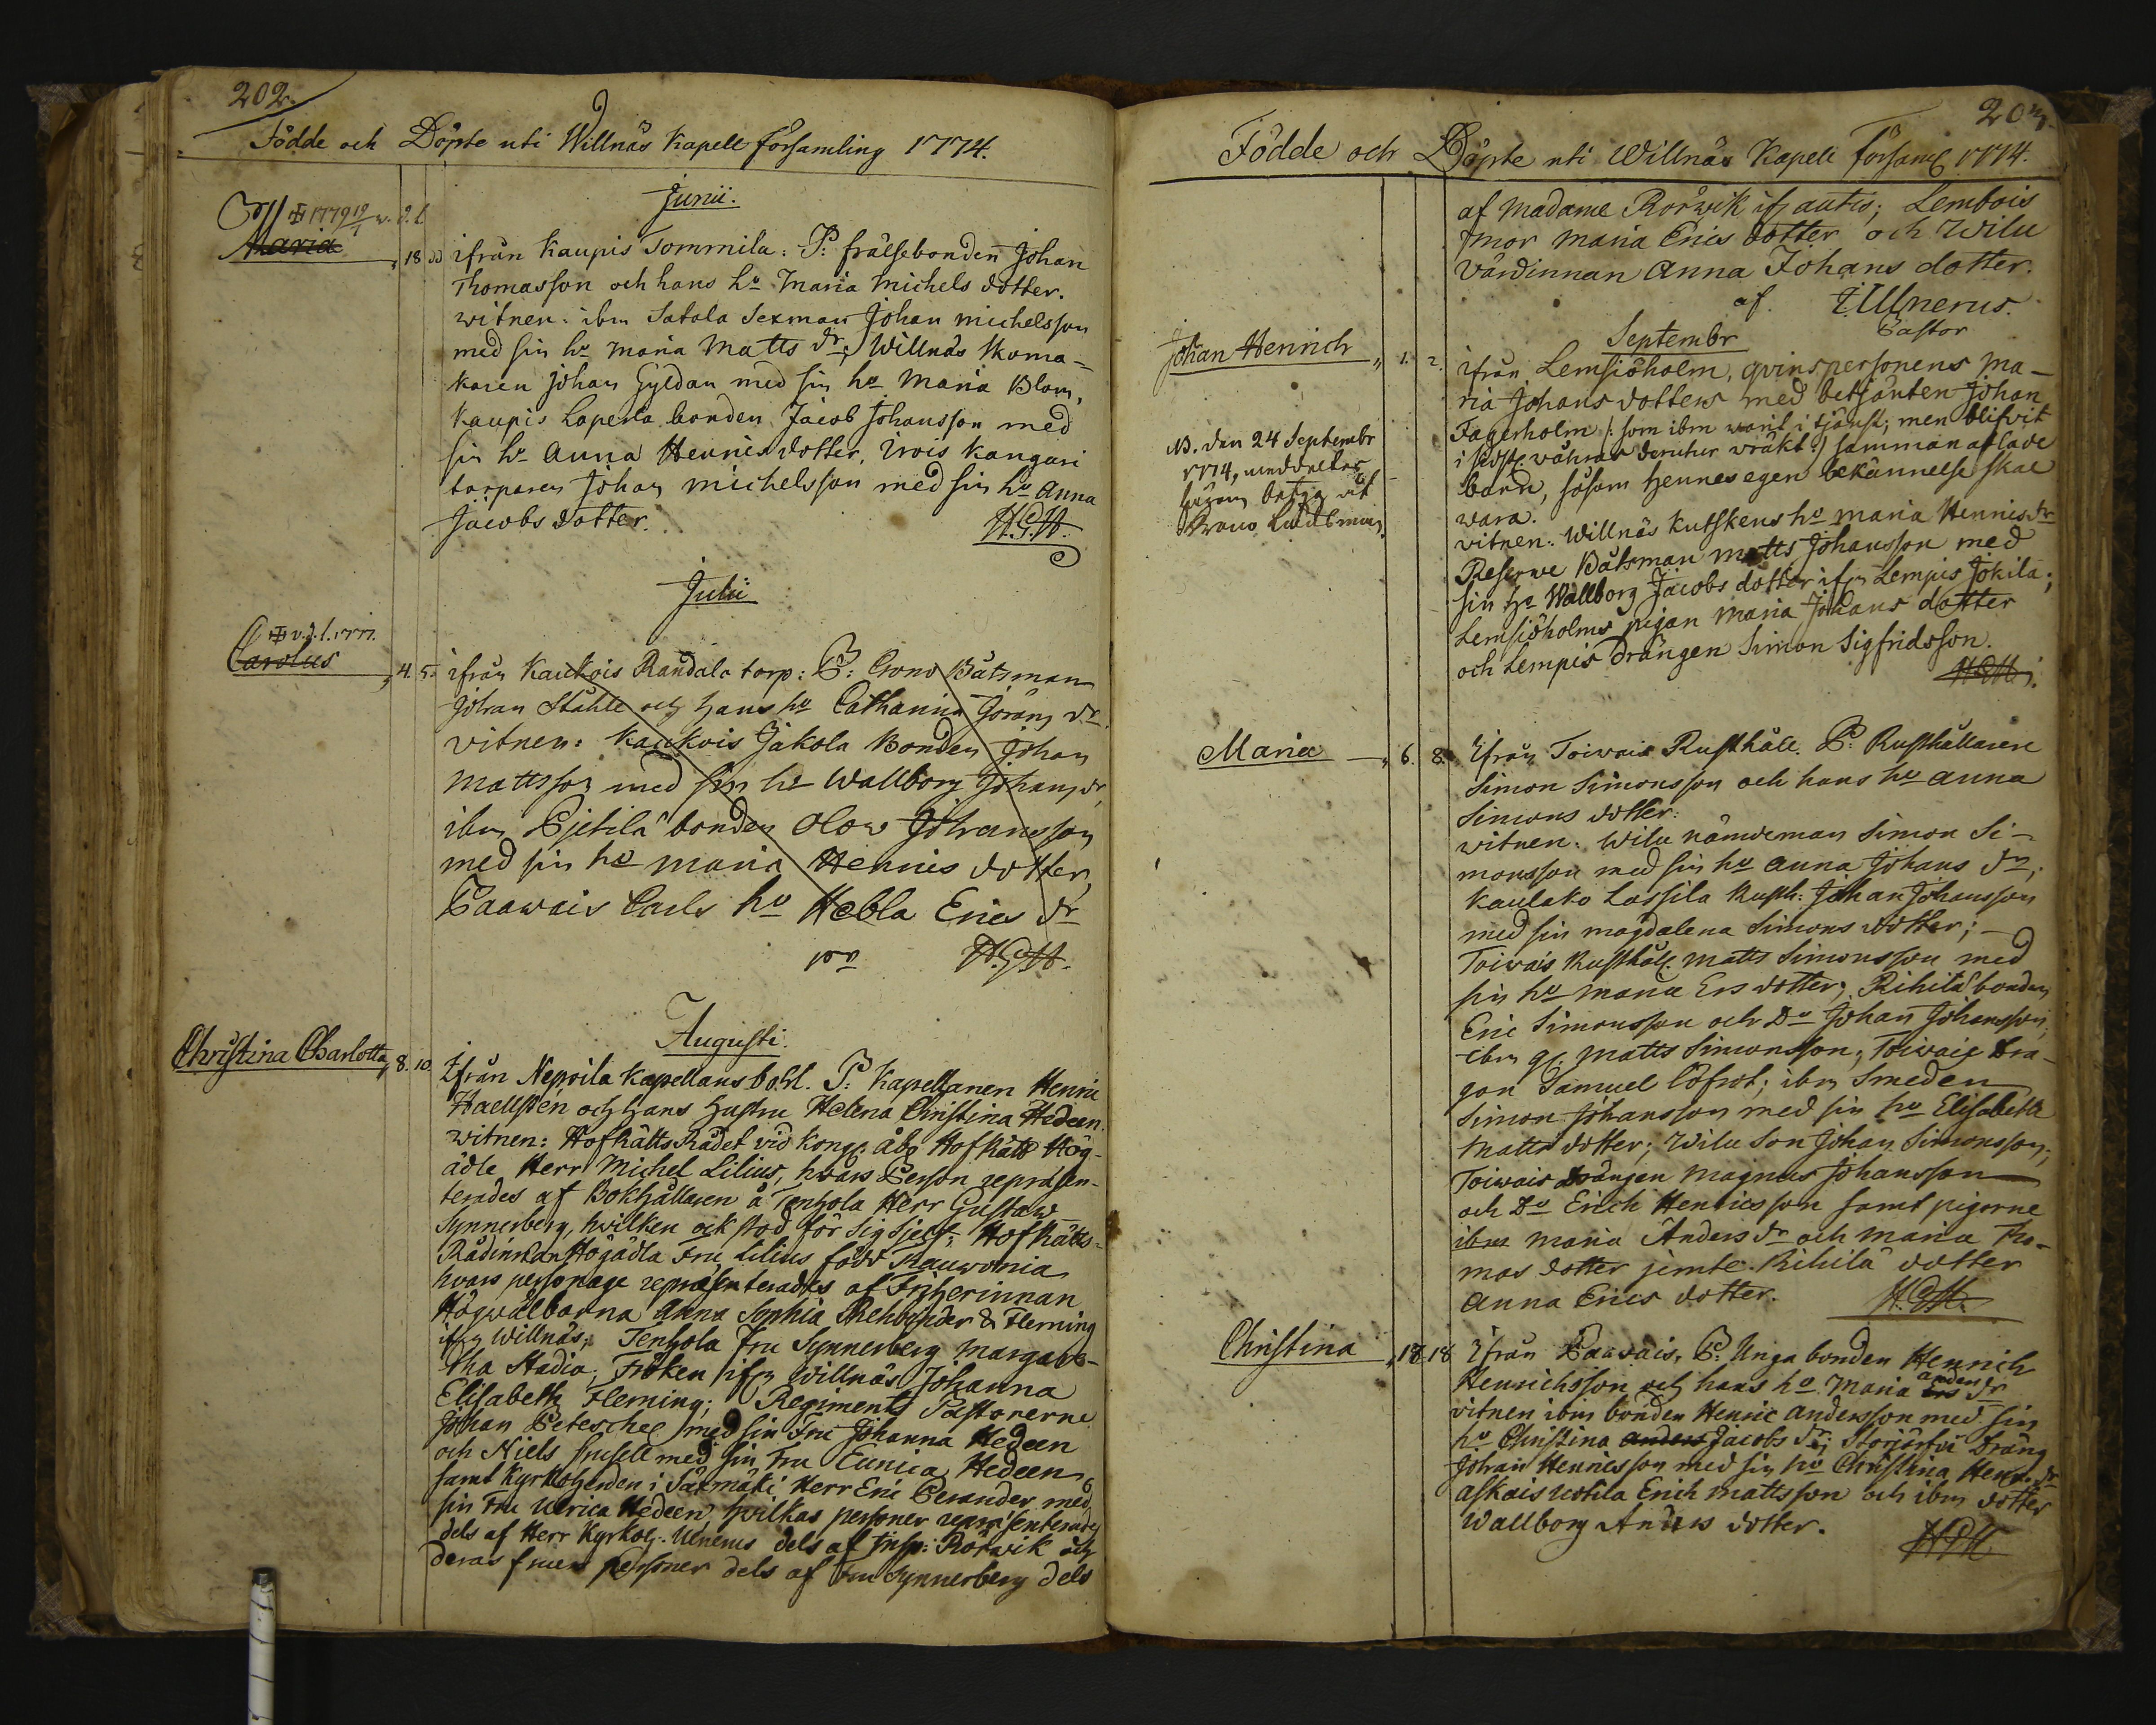 202.
Födde och Döpte uti Willnäs Kapell församling 1774.
Junii.
1779 19/1 v. d. l.
Maria
18 ifrån Kaupis Tommila: P: frälsebonden Johan
Thomasson och hans ho Maria Michels dotter.
witnen: ibm Satola Sexman Johan Michelsson
med sin ho Maria Matts dr; Willnäs skoma-
karen Johan Gyldan med sin ho Maria Blom,
Kaupis Laperla bonden Jacob Johansson med
sin ho Anna Henrics dotter, Kangari
torparen Johan Michelsson med sin ho Anna
Jacobs dotter. H.G.H.
Julii
v. d. l. 1777.
Carolus
4. 5. ifrån Kaukois Randala torp: P: Crono Båtsman
Johan Ståhle och hans ho Catharina Jörans dr.
vitnen: Kaukois Jakola Bonden Johan
Mattsson med sin ho Wallborg Johans dr,
ibm Pjetilä bonden Olow Johansson
med sin ho Maria Henrics dotter,
Paawais Carls ho Hebla Erics dr
H.G.H.
Augusti.
Christina Charlotta
8. 10. Ifrån Nepoila Kapellans bohl. P: Kapellanen Henric
Haellsten och hans hustru Helena Christina Hedeen.
witnen: HofRättsRådet vid Kongl. Åbo HofRätt Hög-
ädle Herr Michel Lilius, hvars Person repræsen-
terades af Bokhållaren å Tenhola Herr Gustaw
Synnerberg, hvilken ock stod för sig sjelf; HofRätts-
Rådinnan Högädla Fru Lilius född
hvars personage repræsenterades af Friherinnan
Högwälborna Anna Sophia Rehbinder & Fleming
ifrn Willnäs; Tenhola Fru Synnerberg Margare-
tha Stadia, Fröken ifrn Willnäs Johanna
Elisabeth Fleming; Regiments Pastorerne
Johan Petesche med sin Fru Johanna Hedeen
och Niels med sin Fru Eunica Hedeen,
samt Kyrkoherden i Säxmäki Herr Eric Perander med
sin Fru Ulrica Hedeen, hvilkas personer repræsenterades
dels af Herr Kyrkoh. Ulnerus dels af Insp: Rörwik och
deras fruers personer dels af Fru Synnerberg dels
Födde och Döpte uti Willnäs Kapell församl 1774.
af Madame Rorwik ifrn autis; Lembois
mor Maria Erics dotter och Wilu
Värdinnan Anna Johans dotter.
af. Ulnerus.
Pastor
Septembr
Johan Henrich
1. 2. ifrån Lemsiöholm, qvinspersonens Ma-
ria Johans dotters med betjänten Johan
Fagerholm /: som ibm warit i tjänst; men blifvit
i sidstl. våhras deruhr vräkt:/ samman aflade
barn, såsom hennes egen bekännelse skal
wara.
NB. den 24 Septembr
1774, meddeltes
vitnen: Willnäs Kutskens ho Maria Henrics dr
Reserwe Båtsman Matts Johansson med
sin ho Wallborg Jacobs dotter ifrn Lempis Jokila;
Lemsiöholms pigan Maria Johans dotter
och Lempis Drängen Simon Sigfridsson.
H.G.H.
Maria
6. 8. Ifrån Toiwais Rusthåll. P: Rusthållaren
Simon Simonsson och hans ho Anna
Simons dotter:
witnen. Wilu nämdeman Simon Si-
monsson med sin ho Anna Johans dr;
Kaulako Lassila Rusth: Johan Johansson
med sin Magdalena Simons dotter; —
Toiwais Rusthåll. Matts Simonsson med
sin ho Maria Ers dotter; Rihilä bonden
Eric Simonsson och Do Johan Johansson,
ibm gl. Matts Simonsson; Toiwais Dra-
gon Samuel Löfrot; ibm Smeden
Simon Johansson med sin ho Elisabeth
Matts dotter; Wilu Son Johan Simonsson;
Toiwais drängen Magnus Johansson
och Do Erich Henricsson samt pigorne
ibm Maria Anders dr och Maria Tho-
mas dotter jemte Rihilä dotter
Anna Erics dotter. H.G.H.
Christina
18 18 Ifrån Paavais, P: Unga bonden Henrich
Henrichsson och hans ho Maria Ers anders dr
vitnen ibm bonden Henric Andersson med sin
ho Christina anders Jacobs dr; Storjärfvi Dräng
Johan Henricsson med sin ho Christina Henr. dr
Askais Erich Mattsson och ibm dotter
Wallborg Anders dotter. H.G.H.